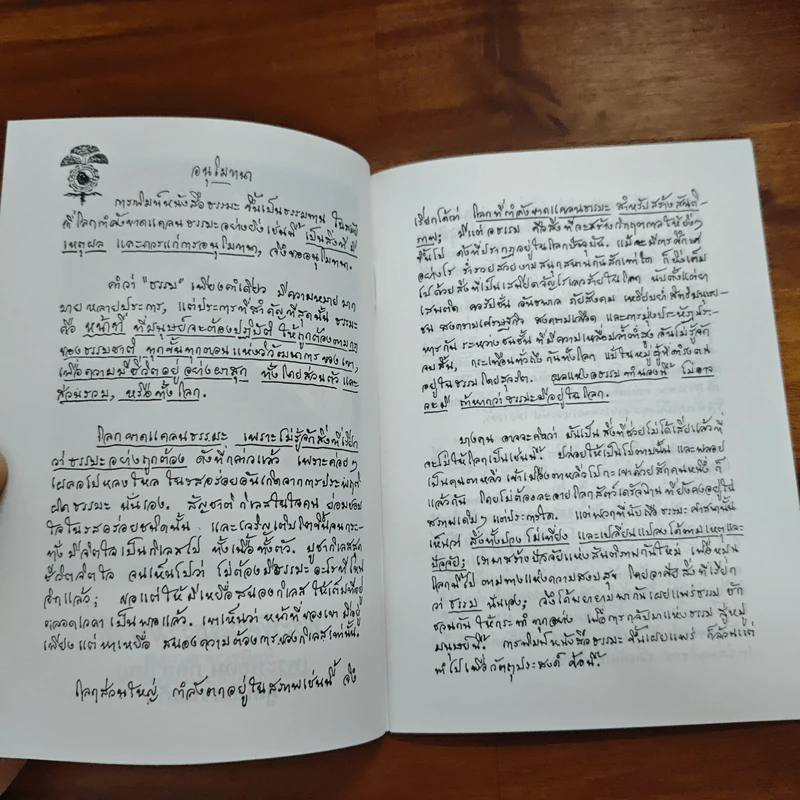 อนุโมทนา
การพิมพ์หนังสือธรรมะ ขึ้นเป็นธรรมทาน ในสมัย
ที่โลกกำลังขาดแคลนธรรมะอย่างยิ่งเช่นนี้ เป็นสิ่งที่มี
เหตุผล และควรแก่การอนุโมทนา, จึงขออนุโมทนา.
คำว่า "ธรรม" เพียงคำเดียว มีความหมายมาก
มายหลายประการ, แต่ประการที่สำคัญที่สุดนั้น ธรรมะ
คือ หน้าที่ ที่มนุษย์จะต้องปฏิบัติ ให้ถูกต้องตามกฎ
ของธรรมชาติ ทุกขั้นทุกตอนแห่งวิวัฒนาการของเขา,
เพื่อความมีชีวิตอยู่อย่างผาสุก ทั้งโดยส่วนตัว และ
ส่วนรวม, หรือทั้งโลก.
โลกขาดแคลนธรรมะ เพราะไม่รู้จักสิ่งที่เรียก
ว่าธรรมะอย่างถูกต้อง ดังที่กล่าวแล้ว เพราะค่อยๆ
เผลอไปหลงใหล ในรสอร่อยอันเกิดจากการประพฤติ
ผิดธรรมะ นั่นเอง. สัญชาติกิเลสในใจคน ย่อมชอบ
ใจในรสอร่อยชนิดนั้น และเจริญเติบโตขึ้นจนกระ-
ทั่งมีจิตใจเป็นกิเลสไป ทั้งเนื้อทั้งตัว. บูชากิเลสสุด
ชีวิตจิตใจ จนเห็นไปว่า ไม่ต้องมีธรรมะอะไรที่ไหน
อีกแล้ว; ขอแต่ให้มีเหยื่อสนองกิเลส ให้เต็มที่อยู่
ตลอดเวลา เป็นพอแล้ว. เขาเห็นว่า หน้าที่ของเขา มีอยู่
เพียงแต่หาเหยื่อ สนองความต้องการของกิเลสเท่านั้น.
โลกส่วนใหญ่ กำลังตกอยู่ในสภาพเช่นนี้ จึง
เรียกได้ว่า โลกที่กำลังขาดแคลนธรรมะ สำหรับสร้างสันติ-
ภาพ; มีแต่อธรรม คือสิ่งที่จะสร้างวิกฤตกาลให้ยิ่งๆ
ขึ้นไป ดังที่ปรากฏอยู่ในโลกปัจจุบัน. แม้จะมีการศึกษา
อย่างไร ร่ำรวยสวยงามสนุกสนานกันสักเท่าใด ก็ยิ่งเต็ม
ไปด้วยสิ่งที่เป็นเสนียดจัญไรเลวร้ายในโลก นับตั้งแต่ยา
เสพติด คอรัปชั่น อันธพาล ภัยสังคม เหยียบย่ำสิทธิมนุษย-
ชน สงครามเศรษฐกิจ สงครามเลือด และการมุ่งประหัตประ-
หารกัน ระหว่างชนชั้น ที่มีความเหลื่อมล้ำต่ำสูง อันไม่รู้จัก
จบสิ้น, กระเทือนทั่วถึงกันทั้งโลก แม้ในหมู่ผู้ที่ดำรงตน
อยู่ในธรรมโดยสุจริต. ผลแห่งอธรรมทำนองนี้ ไม่อาจ
จะมี ถ้าหากว่าธรรมะมีอยู่ในโลก.
บางคน อาจจะคิดว่า มันเป็นสิ่งที่ช่วยไม่ได้เสียแล้วที่
จะไม่ให้โลกเป็นเช่นนี้ ปล่อยให้เป็นไปตามนั้น และพลอย
เป็นคนตาหลิ่ว เข้าเมืองตาหลิ่วไปกะเขาด้วยสักคนหนึ่ง ก็
แล้วกัน โดยไม่ต้องละอายโลกสัตว์เดรัจฉานที่ยังคงอยู่ใน
สภาพเดิมๆ แต่ประการใด. แต่พวกที่นับถือธรรมะศาสนานั้น
เห็นว่า สิ่งทั้งปวงไม่เที่ยง และเปลี่ยนแปลงได้ตามเหตุและ
ปัจจัย; เรามาสร้างปัจจัยแห่งสันติภาพกันใหม่ เพื่อหมุน
โลกนี้ไป ตามทางแห่งความสงบสุข โดยอาศัยสิ่งที่เรียก
ว่า ธรรม นั่นเอง; จึงได้พยายามพากันเผยแพร่ธรรม ชัก
ชวนกัน ให้กระทำทุกอย่าง เพื่อการกลับมาแห่งธรรม สู่หมู่
มนุษย์นี้. การพิมพ์หนังสือธรรมะขึ้นเผยแพร่ ก็ล้วนแต่
ทำไปเพื่อวัตถุประสงค์ ข้อนี้.